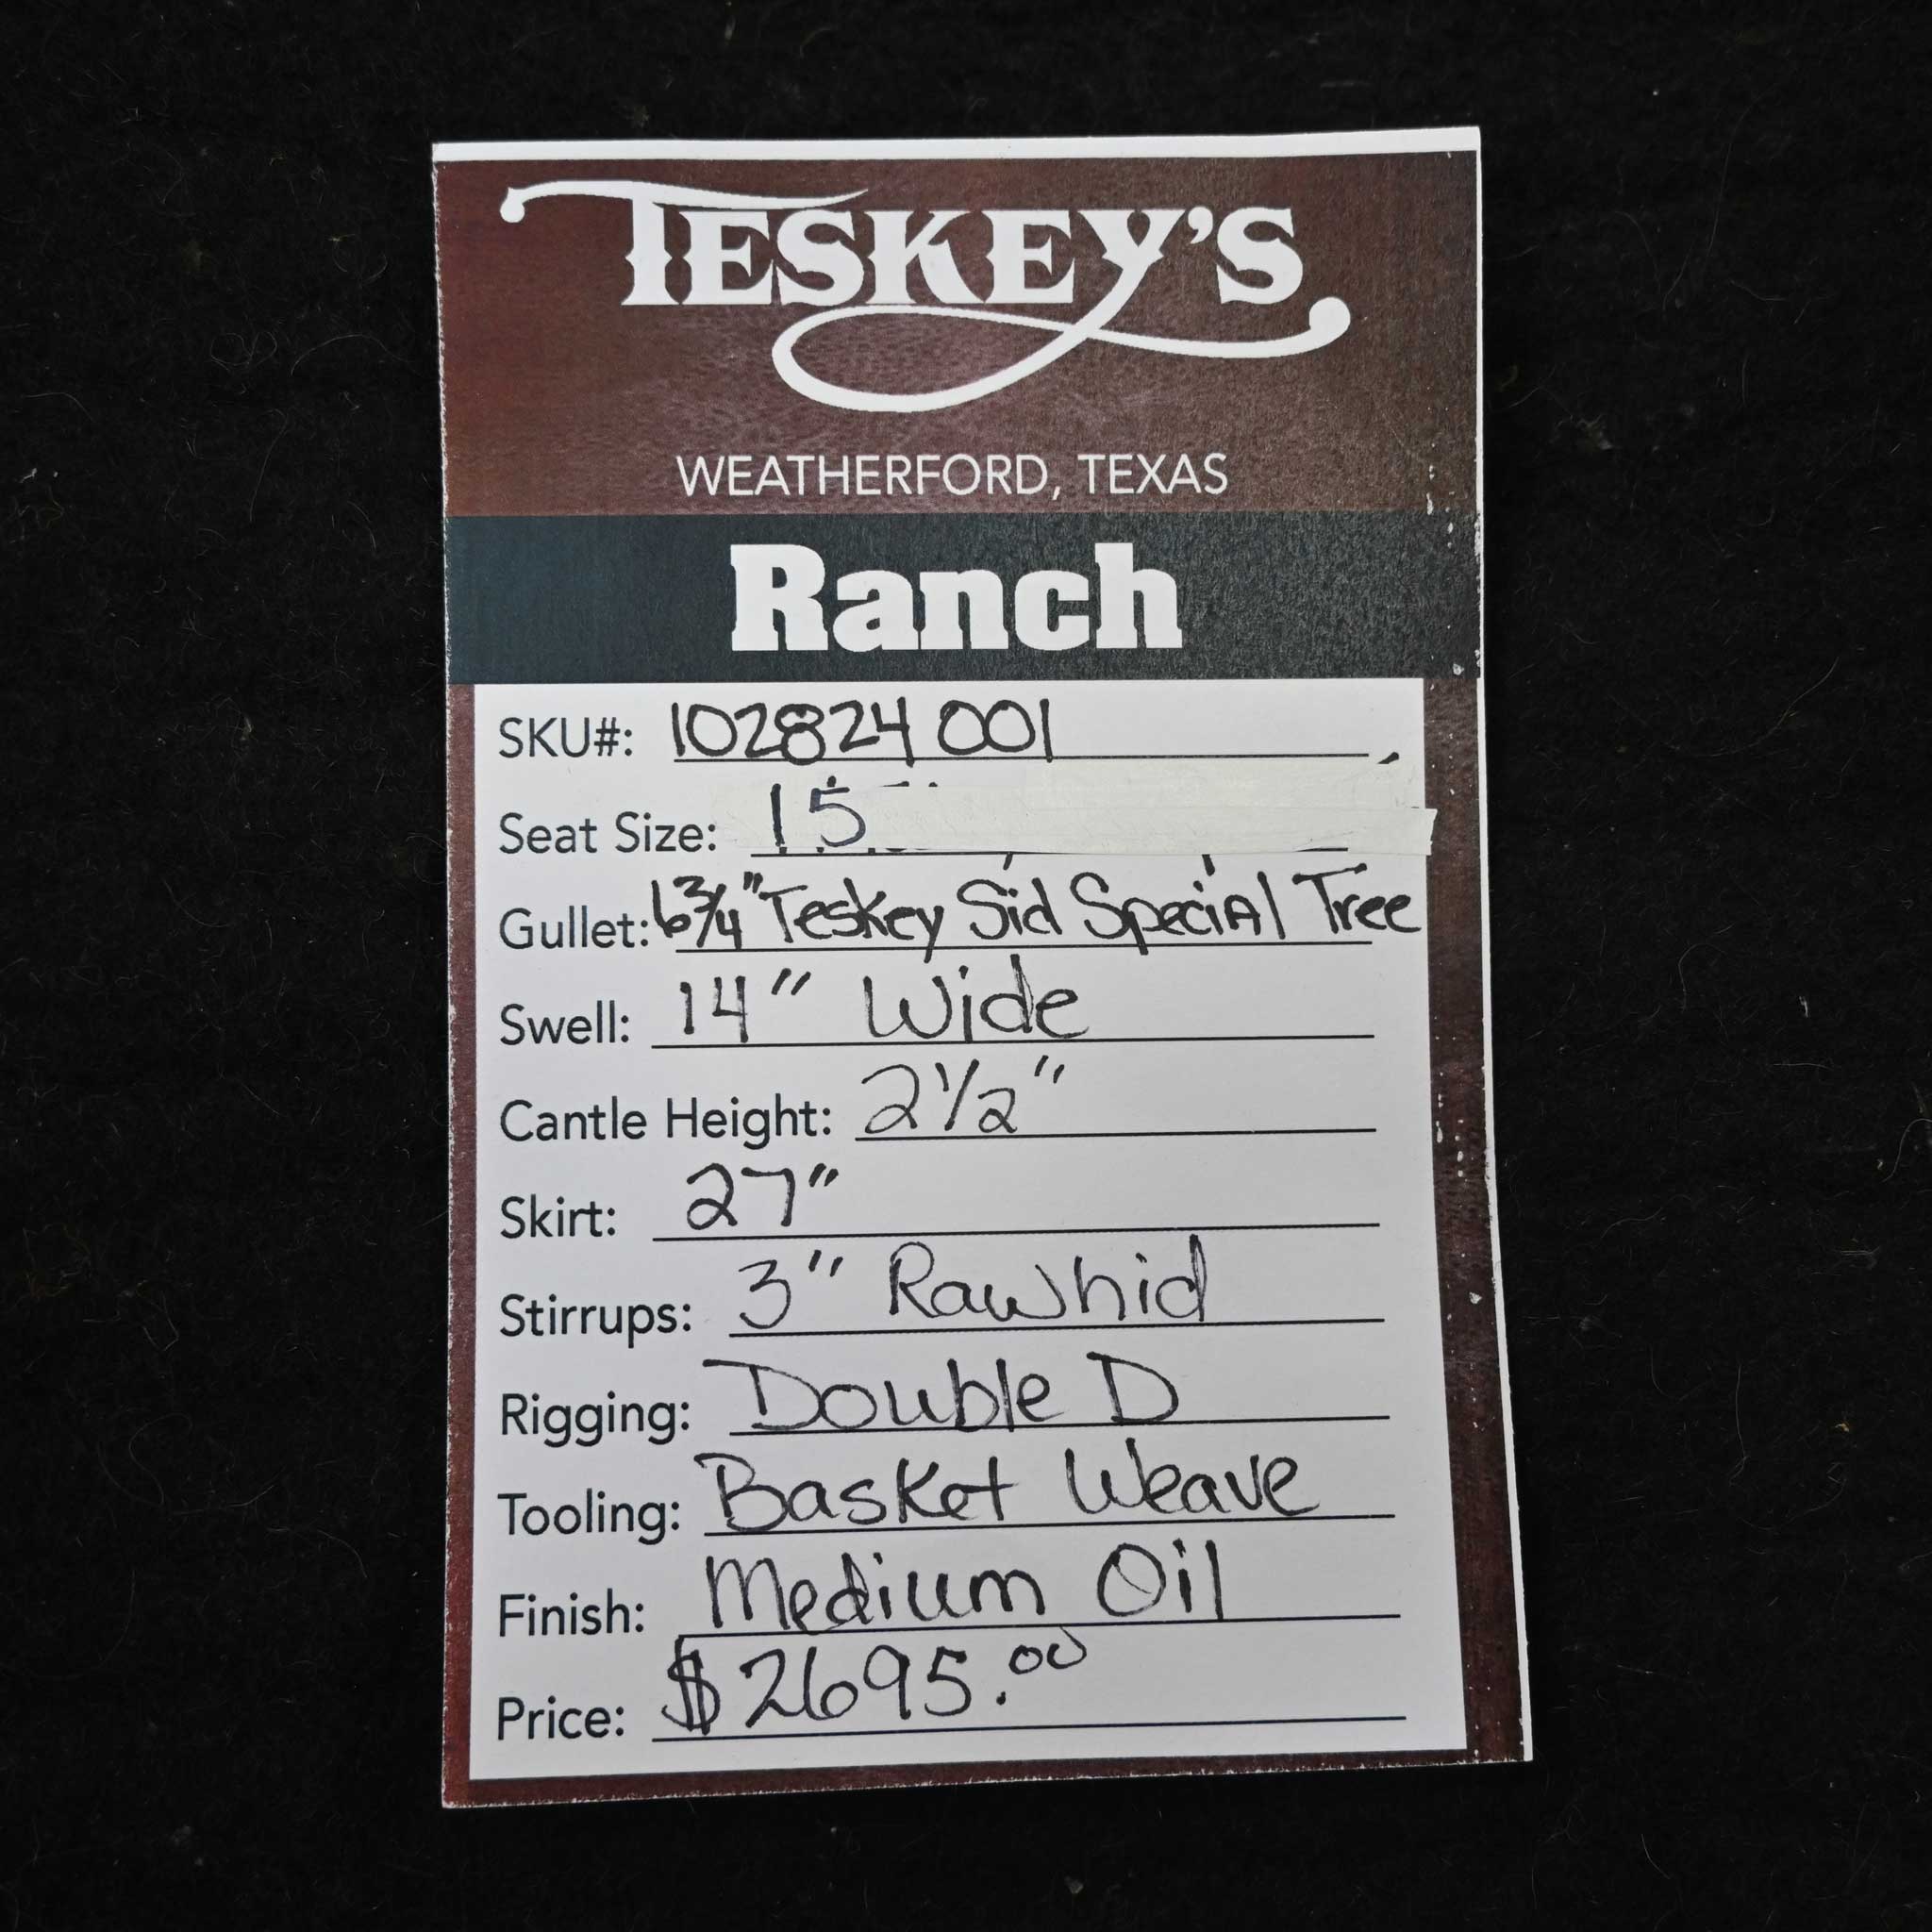 TESKEY'S
WEATHERFORD, TEXAS
Ranch
SKU#: 102824 001
Seat Size: 15
Gullet: 6 3/4" Teskey Sid Special Tree
Swell: 14" Wide
Cantle Height: 2 1/2"
Skirt: 27"
Stirrups: 3" Rawhid
Rigging: Double D
Tooling: Basket Weave
Finish: Medium Oil
Price: $2695.00